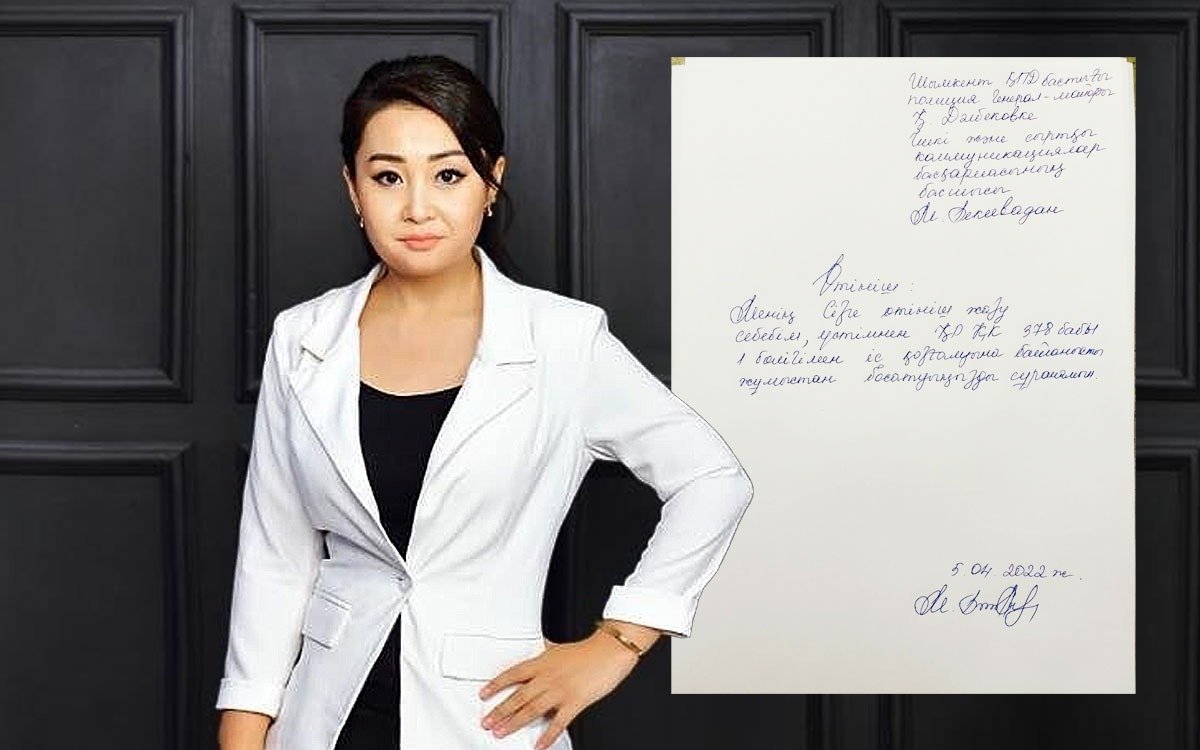 Шымкент ҚПД бастығы
полиция генерал-майоры
Қ. Дәлбековке
Ішкі және сыртқы
коммуникациялар
басқармасының
басшысы
М. Бекеевадан
Өтініш:
Менің Сізге өтініш жазу
себебім, үстімнен ҚР ҚК 378 бабы
1 бөлігімен іс қозғалуына байланысты
жұмыстан босатуыңызды сұраймын.
5.04.2022 ж.